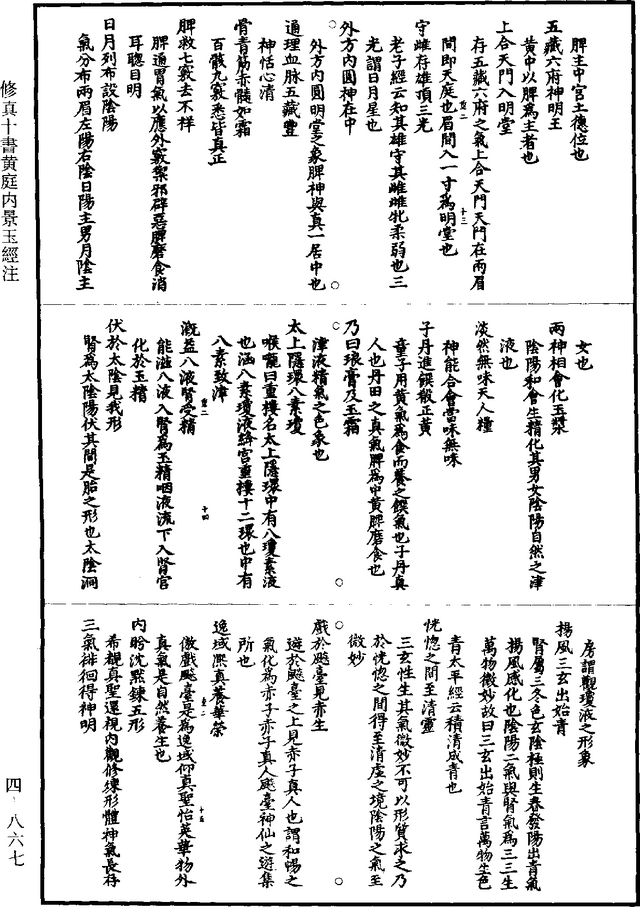 脾主中官土德位也
五藏六府神明王
黄中以脾為主者也
上合天門入明堂
存五藏六府之氣上合天門天門在兩眉
間即天庭也眉間入一寸為明堂也
守雌存雄頂三光
老子經云知其雄守其雌雌牝柔弱也三
光謂日月星也
外方内圓神在中
外方内圓明堂之象脾神與真一居中也
通理血脉五藏豐
神恬心清
骨青筋赤髓如霜
百骸九竅悉皆真正
脾救七竅去不祥
脾通胃氣以應外竅禦邪辟惡脾磨食消
耳聰目明
日月列布設陰陽
氣分布兩眉左陽右陰日陽主男月陰主
女也
兩神相會化玉漿
陰陽和會生精化其男女陰陽自然之津
液也
淡然無味天人糧
神能合會當味無味
子丹進饌殽正黄
童子用黄氣為食而養之饌氣也子丹真
人也丹田之真氣脾為中黄脾磨食也
乃曰琅膏及玉霜
津液精氣之色象也
太上隱環八素瓊
喉嚨曰重樓名太上隱環中有八瓊素液
也涵八素瓊液絳宮重樓十二環也中有
八素致津
溉益八液腎受精
能滋八液入腎為玉精咽液流下入腎宮
化於玉精
伏於太陰見我形
腎為太陰陽伏其間是胎之形也太陰洞
房謂觀瓊液之形象
揚風三玄出始青
腎屬三冬色玄陰極則生春發陽出青氣
揚風感化也陰陽二氣與腎氣為三三生
萬物微妙故曰三玄出始青言萬物生色
青太平經云積清成青也
恍惚之間至清靈
三玄性生其氣微妙不可以形質求之乃
於恍惚之間得至清虛之境陰陽之氣至
微妙
戲於飈臺見赤生
遊於飈臺之上見赤子真人也謂和陽之
氣化為赤子赤子真人飈臺神仙之遊集
所也
逸域熈真養華榮
傲戲飈臺是為逸域仰真聖怡英華物外
真氣是自然養生也
内盻沈黙鍊五形
希覩真聖還視内觀修煉形體神氣長存
三氣徘徊得神明
修真十書黄庭内景玉經注
四·八六七